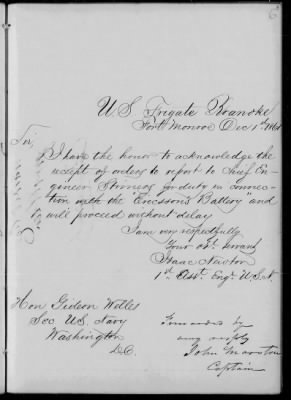 6
U.S. Frigate Roanoke
Fort Monroe Dec 1st 1861
Sir,
I have the honor to acknowledge the
receipt of orders to report to Chief En-
gineer Stimers for duty in connec-
tion with the "Ericsson's Battery" and
will proceed without delay
I am very respectfully
Your obt. servant
Isaac Newton
1st Asst. Engr. U.S.N.
Hon Gideon Welles
Sec U.S. Navy
Washington
D.C.
Forwarded by
John Marston
Captain